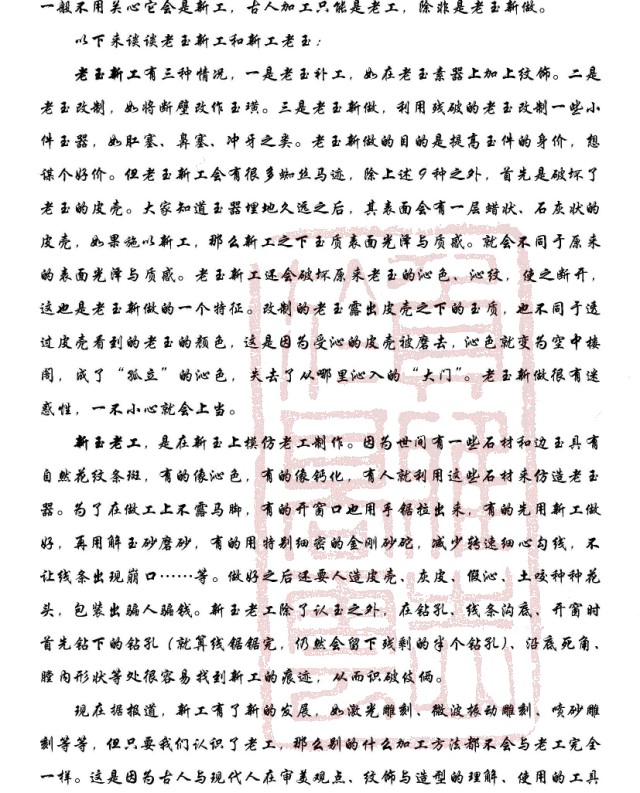 一般不用关心它会是新工，古人加工只能是老工，除非是老玉新做。
以下来谈谈老玉新工和新工老玉：
老玉新工有三种情况，一是老玉补工，如在老玉素器上加上纹饰。二是
老玉改制，如将断璧改作玉璜。三是老玉新做，利用残破的老玉改制一些小
件玉器，如肛塞、鼻塞、冲牙之类。老玉新做的目的是提高玉件的身价，想
谋个好价。但老玉新工会有很多蜘丝马迹，除上述9种之外，首先是破坏了
老玉的皮壳。大家知道玉器埋地久远之后，其表面会有一层蜡状、石灰状的
皮壳，如果施以新工，那么新工之下玉质表面光泽与质感。就会不同于原来
的表面光泽与质感。老玉新工还会破坏原来老玉的沁色、沁纹，使之断开，
这也是老玉新做的一个特征。改制的老玉露出皮壳之下的玉质，也不同于透
过皮壳看到的老玉的颜色，这是因为受沁的皮壳被磨去，沁色就变为空中楼
阁，成了“孤立”的沁色，失去了从哪里沁入的“大门”。老玉新做很有迷
惑性，一不小心就会上当。
新玉老工，是在新玉上模仿老工制作。因为世间有一些石材和边玉具有
自然花纹条斑，有的像沁色，有的像钙化，有人就利用这些石材来仿造老玉
器。为了在做工上不露马脚，有的开窗口也用手锯拉出来，有的先用新工做
好，再用解玉砂磨砂，有的用特别细密的金刚砂砣，减少转速细心勾线，不
让线条出现崩口……等。做好之后还要人造皮壳、灰皮、假沁、土咬种种花
头，包装出骗人骗钱。新玉老工除了认玉之外，在钻孔、线条沟底、开窗时
首先钻下的钻孔（就算线锯锯完，仍然会留下残剩的半个钻孔）、沿底死角、
膛内形状等处很容易找到新工的痕迹，从而识破伎俩。
现在据报道，新工有了新的发展，如激光雕刻、微波振动雕刻、喷砂雕
刻等等，但只要我们认识了老工，那么别的什么加工方法都不会与老工完全
一样。这是因为古人与现代人在审美观点、纹饰与造型的理解、使用的工具